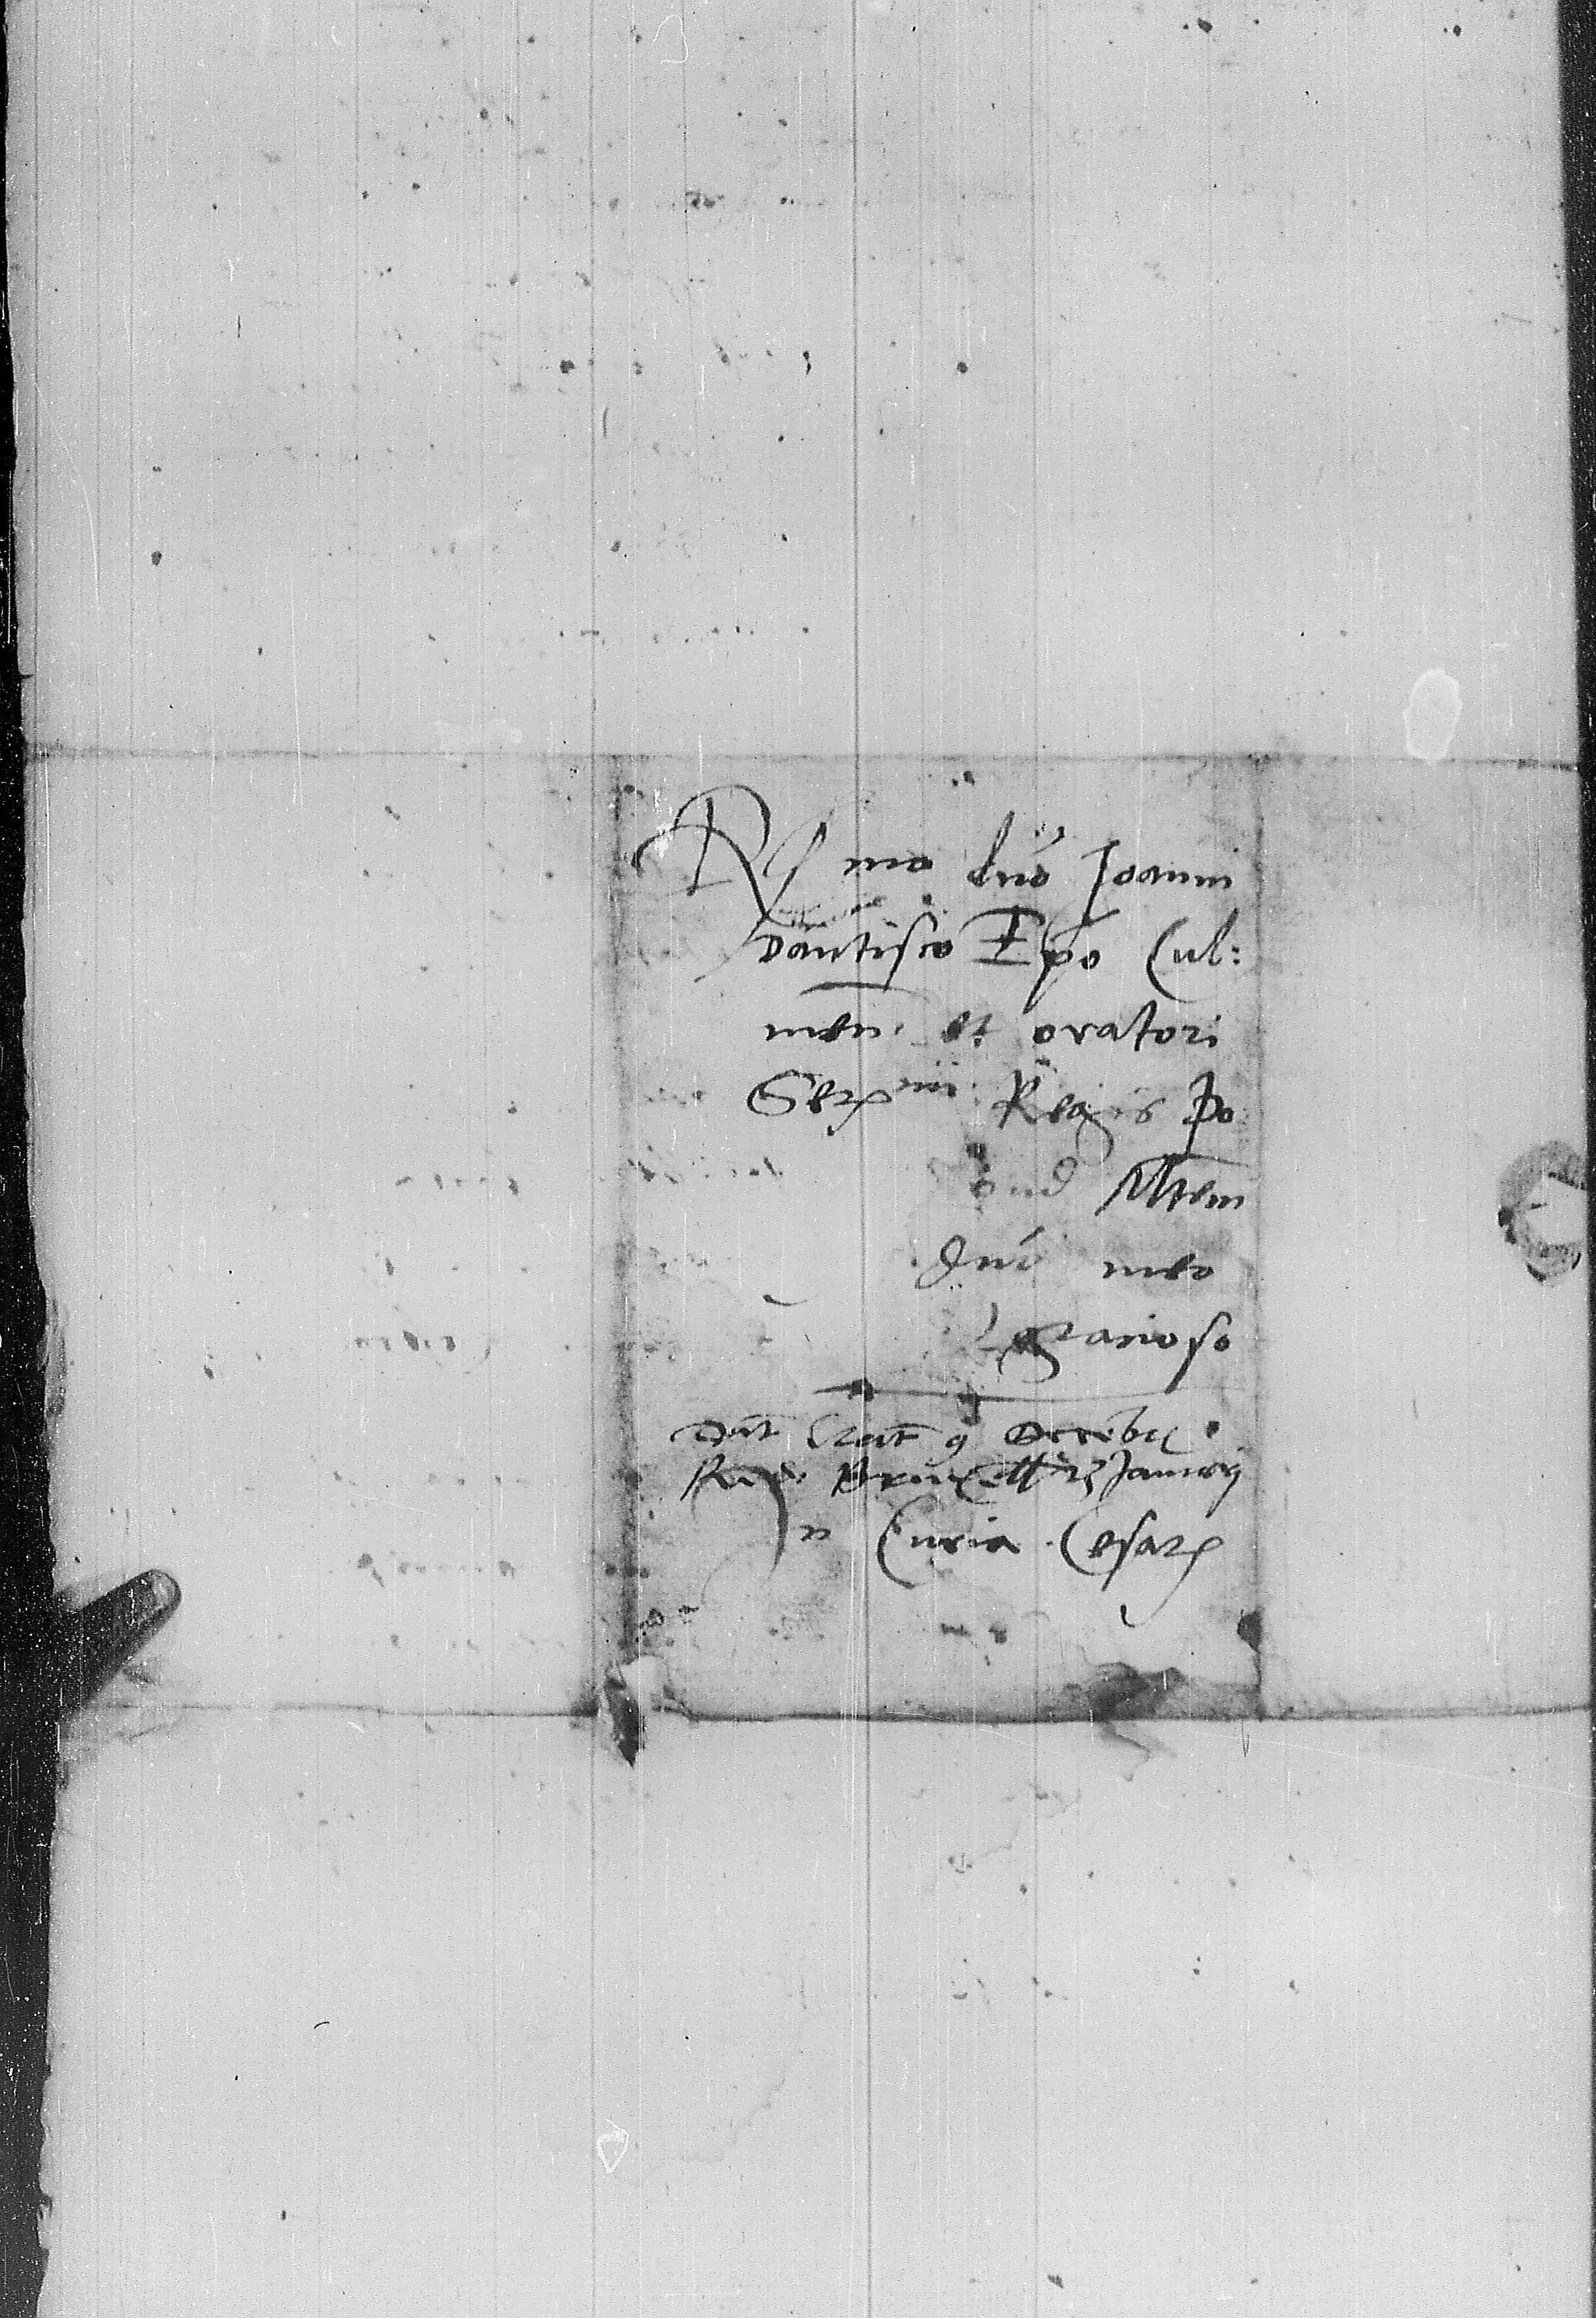 R mo dno Joanni
Dantisco Epo Cul:
men. et oratori
Ser mi. Regis Po
Dno meo
gracioso
Dat Crac 9 Decebr
Red. Bruxellis Januarij
In Curia Cesar